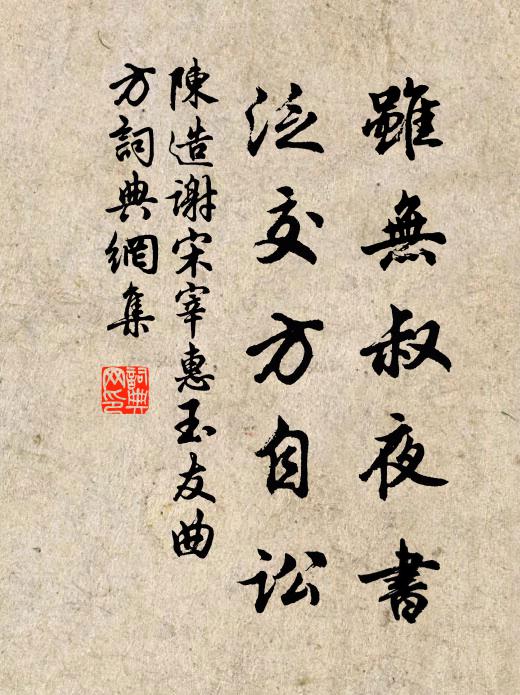 雖無叔夜書
泛交方自訟
陳造謝宋宰惠玉友曲
方詞典網集
詞典網印